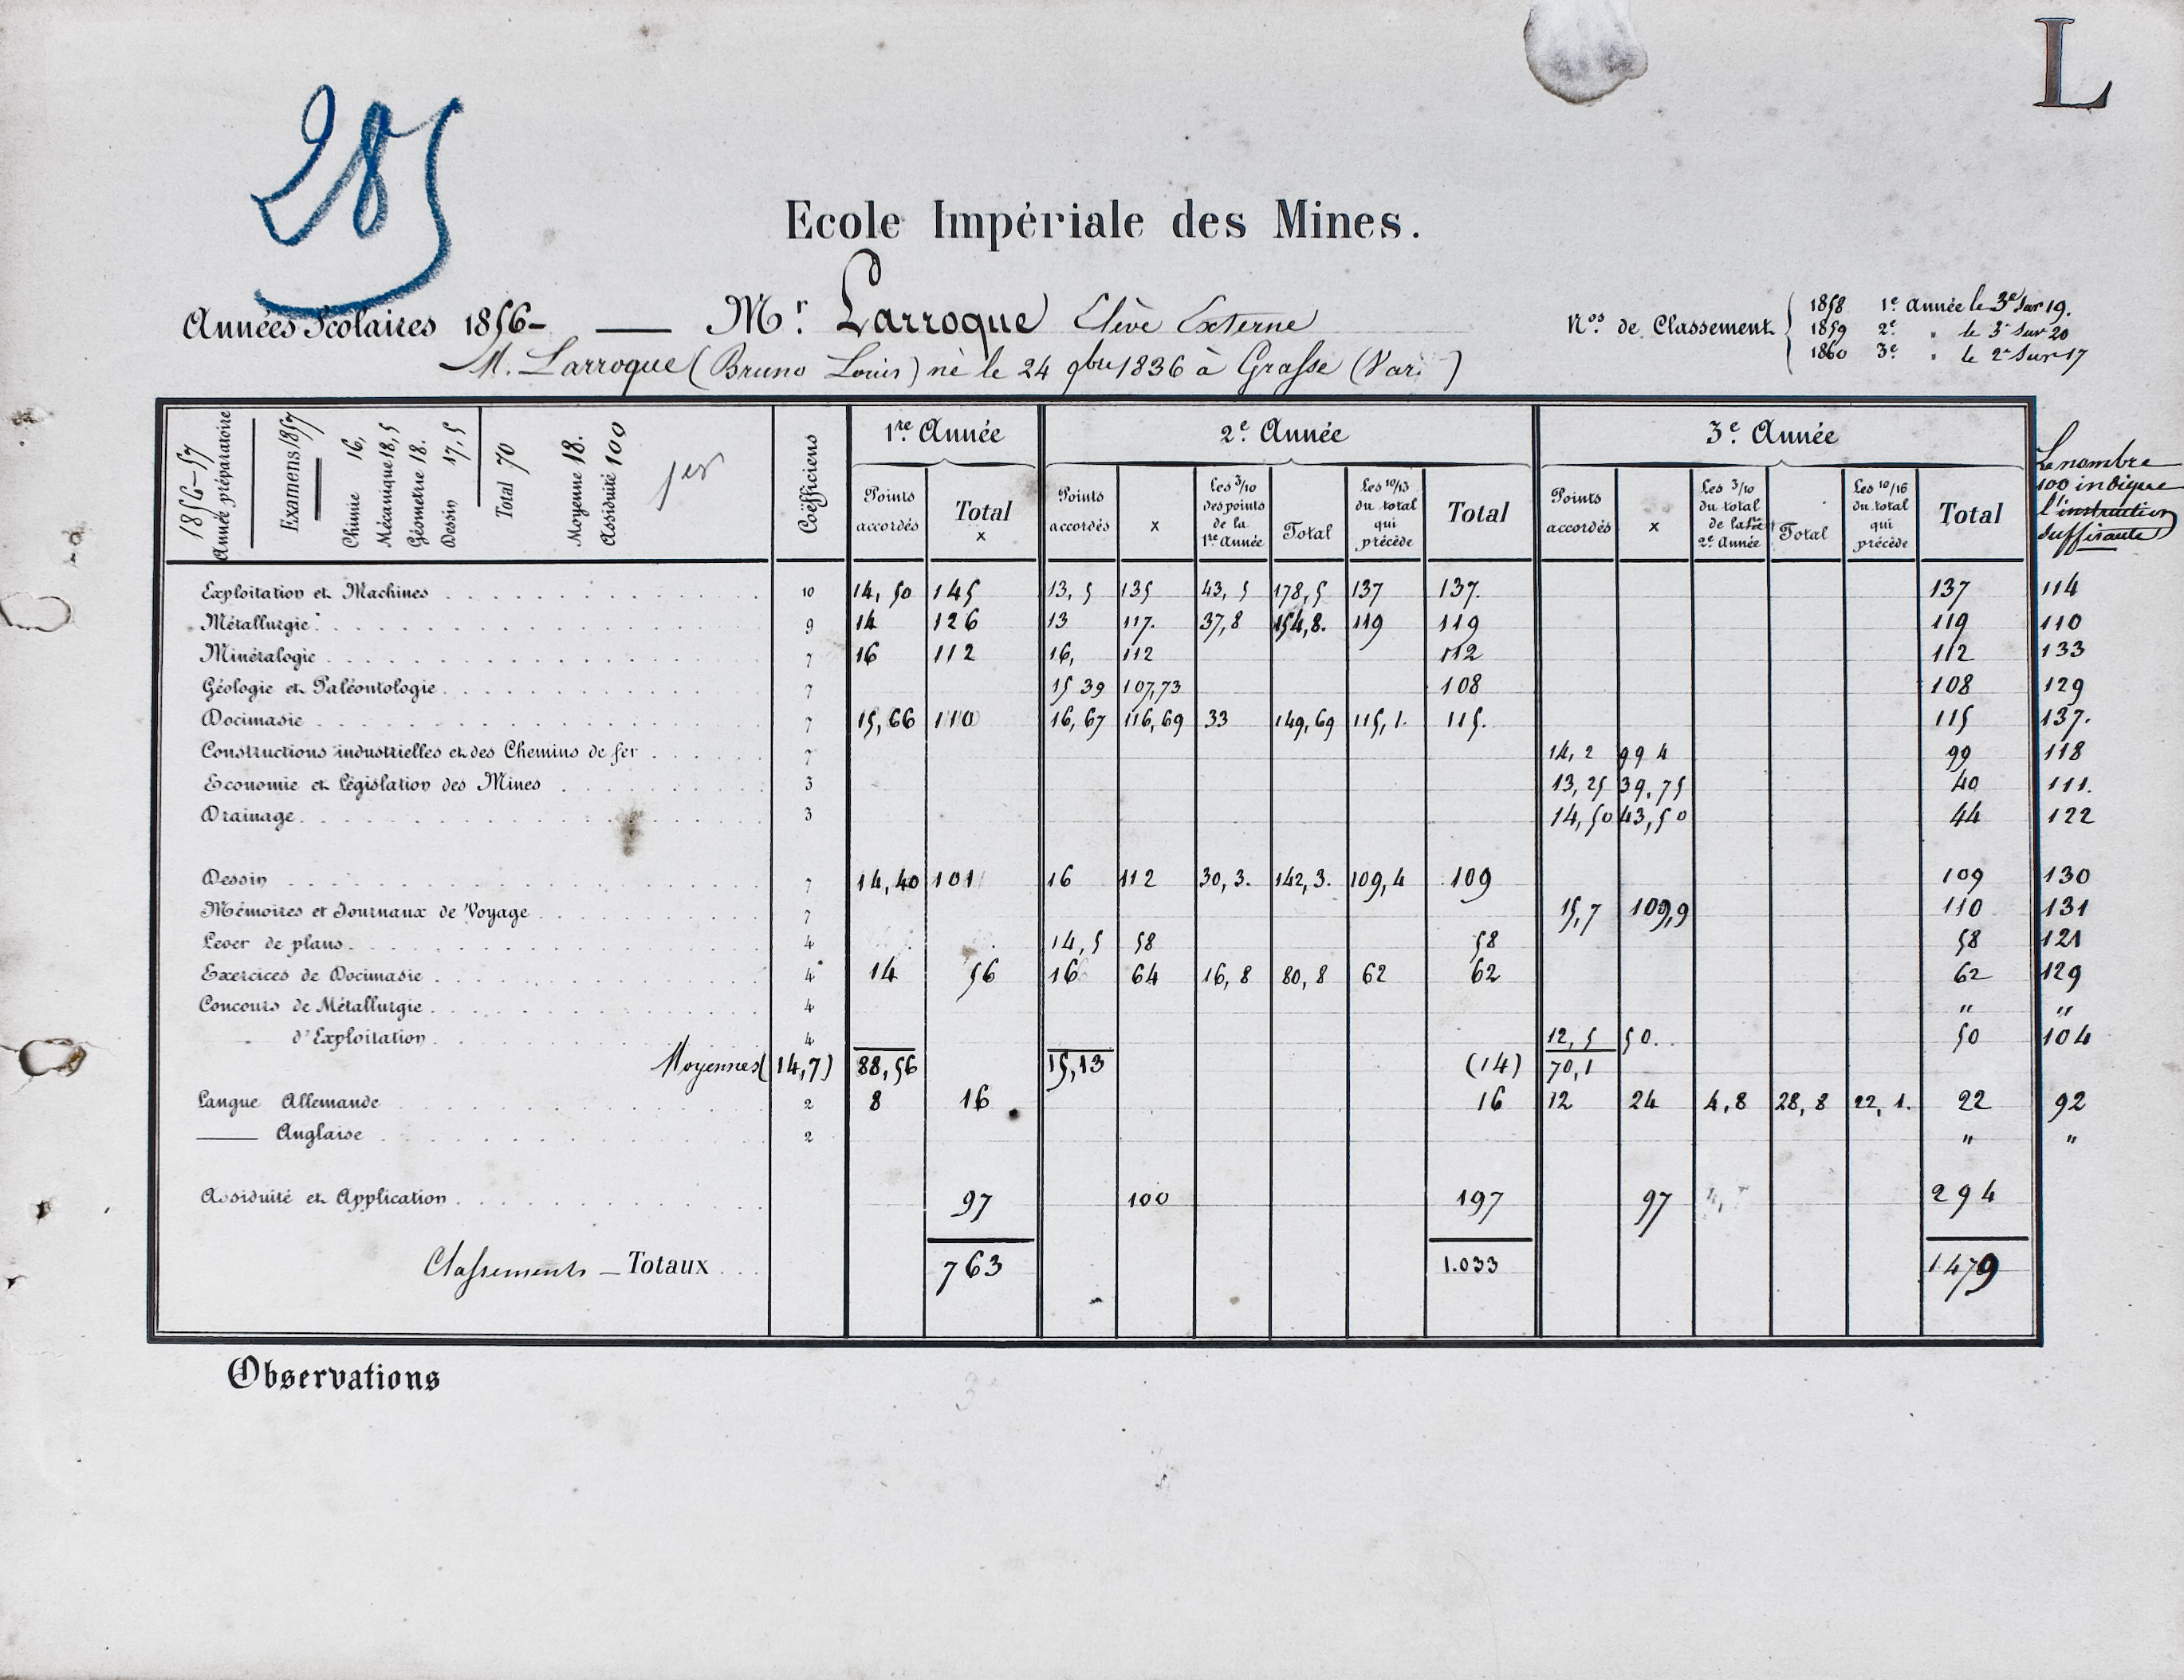 L
285
Ecole Impériale des Mines.
Années Scolaires 1856- — Mr. Larroque Elève Externe
M. Larroque (Bruno Louis) né le 24 9bre 1836 à Grasse (Var)
Nos de Classement
1858 1e année le 3e sur 19.
1859 2e " le 3e sur 20
1860 3e " le 2e sur 17
1856-57
Année préparatoire
Examens 1857
Chimie 16,
Mécanique 18,5
Géométrie 18.
Dessin 17,5
Total 70
Moyenne 18.
Assiduité 100
1er
Coëfficiens
1re Année
Points accordés
Total x
2e Année
Points accordés
x
Les 3/10 des points de la 1re Année
Total
Les 10/13 du total qui précède
Total
3e Année
Points accordés
x
Les 3/10 du total de la 2e Année
Total
Les 10/16 du total qui précède
Total
Le nombre
100 indique
l'instruction
suffisante
Exploitation et Machines 10 14,50 145 13,5 135 43,5 178,5 137 137. 137 114
Métallurgie 9 14 126 13 117. 37,8 154,8. 119 119 119 110
Minéralogie 7 16 112 16, 112 112 112 133
Géologie et Paléontologie 7 15 39 107,73 108 108 129
Docimasie 7 15,66 110 16,67 116,69 33 149,69 115,1. 115. 115 137.
Constructions industrielles et des Chemins de fer 7 14,2 99 4 99 118
Economie et Législation des Mines 3 13,25 39,75 40 111.
Drainage 3 14,50 43,50 44 122
Dessin 7 14,40 101 16 112 30,3. 142,3. 109,4 109 109 130
Mémoires et Journaux de Voyage 7 15,7 109,9 110 131
Lever de plans 4 14,5 58 58 58 121
Exercices de Docimasie 4 14 56 16 64 16,8 80,8 62 62 62 129
Concours de Métallurgie 4 " "
— d'Exploitation 4 12,5 50. 50 104
Moyennes (14,7) 88,56 15,13 (14) 70,1
Langue Allemande 2 8 16 16 12 24 4,8 28,8 22,1. 22 92
— Anglaise 2 " "
Assiduité et Application 97 100 197 97 294
Classements — Totaux 763 1.033 1479
Observations